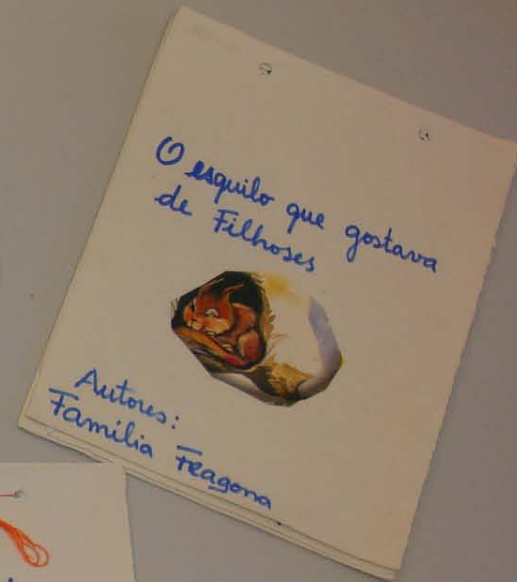 O esquilo que gostava
de Filhoses
Autores:
Família Fragona